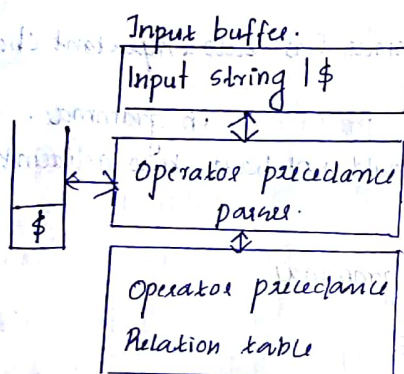 Input buffer.
Input string | $
Operator precedance
parser.
$
Operator precedance
Relation table